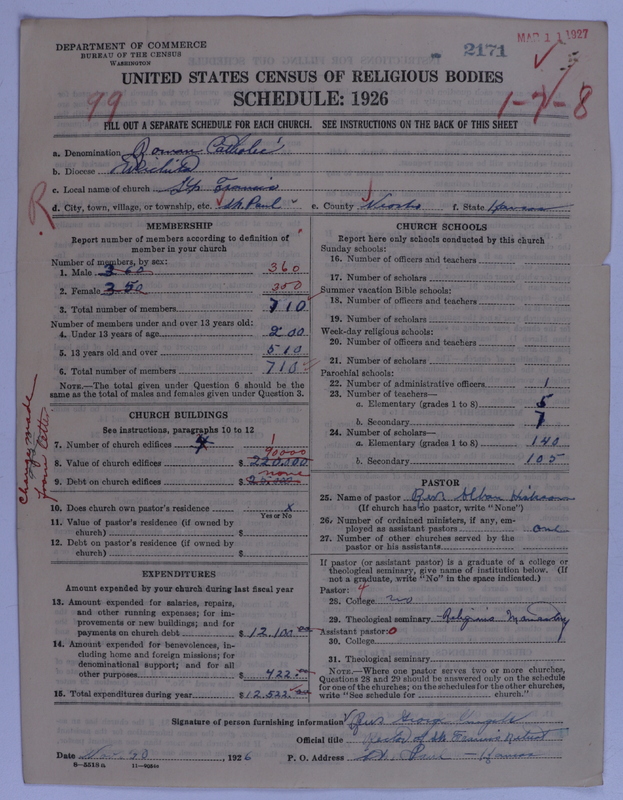 DEPARTMENT OF COMMERCE
BUREAU OF THE CENSUS
WASHINGTON
2171
MAR 11 1927
UNITED STATES CENSUS OF RELIGIOUS BODIES
SCHEDULE: 1926
99
1-7-8
FILL OUT A SEPARATE SCHEDULE FOR EACH CHURCH. SEE INSTRUCTIONS ON THE BACK OF THIS SHEET
a. Denomination Roman Catholic
b. Diocese Wichita
c. Local name of church St. Francis
R
d. City, town, village, or township, etc. St. Paul e. County Neosho f. State Kansas
MEMBERSHIP
Report number of members according to definition of member in your church
Number of members, by sex:
1. Male 360 360
2. Female 350 350
3. Total number of members 710
Number of members under and over 13 years old:
4. Under 13 years of age 200
5. 13 years old and over 510
6. Total number of members 710
NOTE.—The total given under Question 6 should be the
same as the total of males and females given under Question 3.
CHURCH BUILDINGS
See instructions, paragraphs 10 to 12
7. Number of church edifices 4 1
90000
8. Value of church edifices $ 220,000
none
9. Debt on church edifices $
Changes made
from letter
10. Does church own pastor's residence x
Yes or No
11. Value of pastor's residence (if owned by
church) $
12. Debt on pastor's residence (if owned by
church) $
EXPENDITURES
Amount expended by your church during last fiscal year
13. Amount expended for salaries, repairs,
and other running expenses; for im-
provements or new buildings; and for
payments on church debt $ 12,100.00
14. Amount expended for benevolences, in-
cluding home and foreign missions; for
denominational support; and for all
other purposes $ 422.00
15. Total expenditures during year $ 12,522.00
CHURCH SCHOOLS
Report here only schools conducted by this church
Sunday schools:
16. Number of officers and teachers
17. Number of scholars
Summer vacation Bible schools:
18. Number of officers and teachers
19. Number of scholars
Week-day religious schools:
20. Number of officers and teachers
21. Number of scholars
Parochial schools:
22. Number of administrative officers 1
23. Number of teachers—
a. Elementary (grades 1 to 8) 5
b. Secondary 7
24. Number of scholars—
a. Elementary (grades 1 to 8) 140
b. Secondary 105
PASTOR
25. Name of pastor Rev. Alban
(If church has no pastor, write "None")
26. Number of ordained ministers, if any, em-
ployed as assistant pastors one
27. Number of other churches served by the
pastor or his assistants
If pastor (or assistant pastor) is a graduate of a college or
theological seminary, give name of institution below. (If
not a graduate, write "No" in the space indicated.)
Pastor: 4
28. College no
29. Theological seminary Religious Monastery
Assistant pastor: 0
30. College
31. Theological seminary
NOTE.—Where one pastor serves two or more churches,
Questions 28 and 29 should be answered only on the schedule
for one of the churches; on the schedules for the other churches,
write "See schedule for church."
Signature of person furnishing information Rev. George
Official title Rector of St. Francis
Date Nov. 20, 1926 P. O. Address St. Paul — Kansas
8-5518a